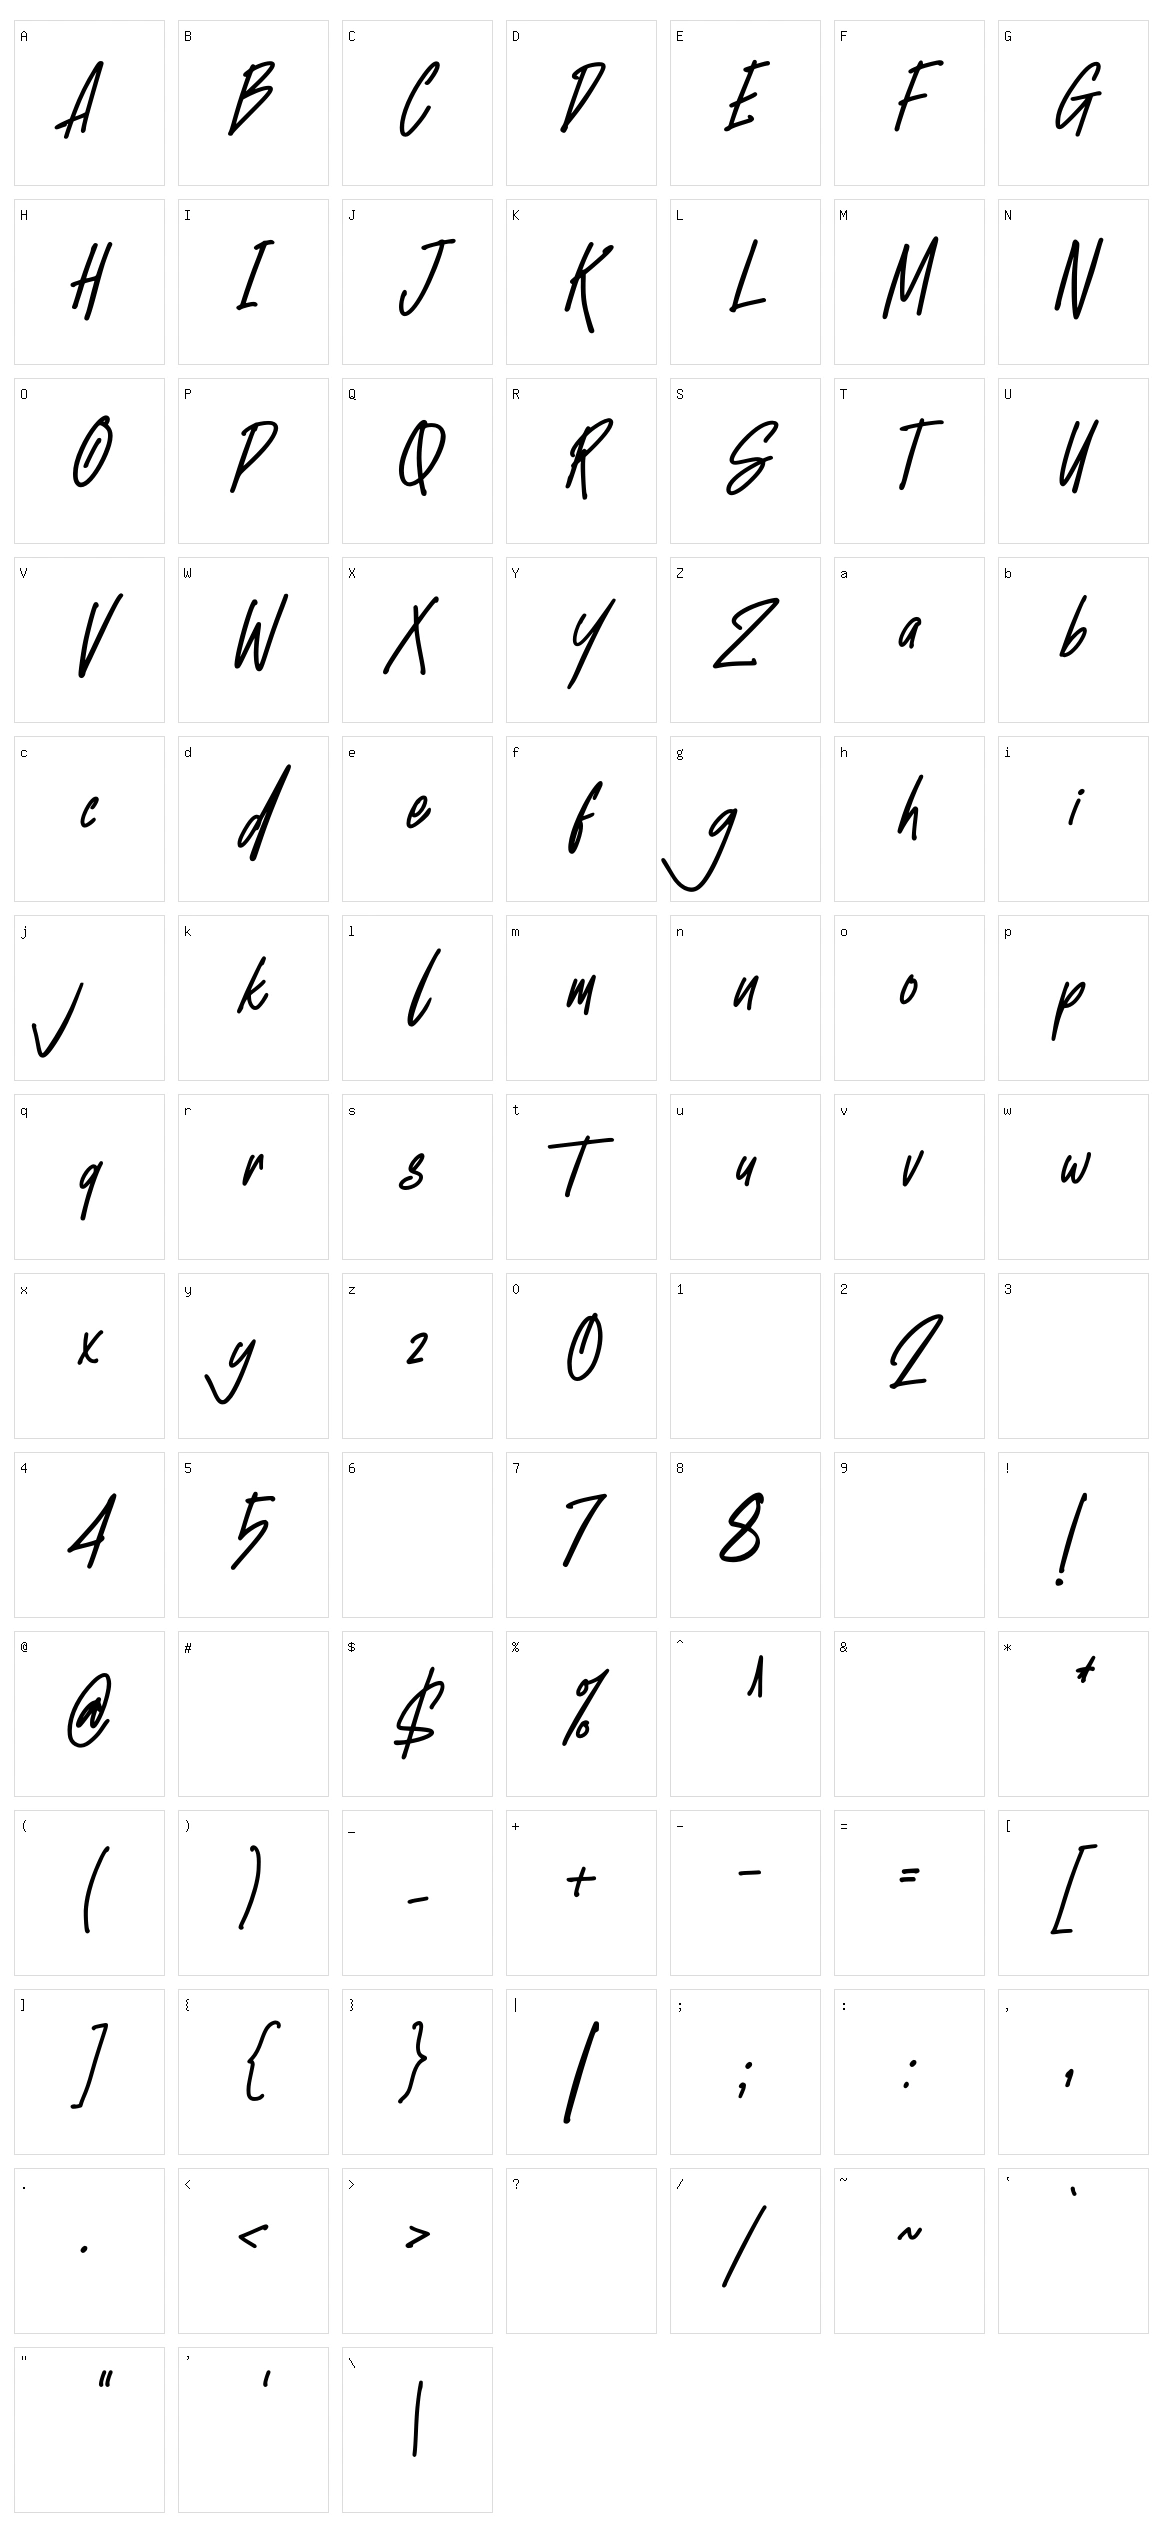 A B C D E F G
A B C D E F G
H I J K L M N
H I J K L M N
O P Q R S T U
O P Q R S T U
V W X Y Z a b
V W X Y Z a b
c d e f g h i
c d e f g h i
j k l m n o p
j k l m n o p
q r s t u v w
q r s t u v w
x y z 0 1 2 3
x y z 0 2
4 5 6 7 8 9 !
4 5 7 8 !
@ # $ % ^ & *
@ $ % ^ *
( ) _ + - = [
( ) _ + - = [
] { } | ; : ,
] { } | ; : ,
. < > ? / ~ ‛
. < > / ~ `
" ’ \
" ' \